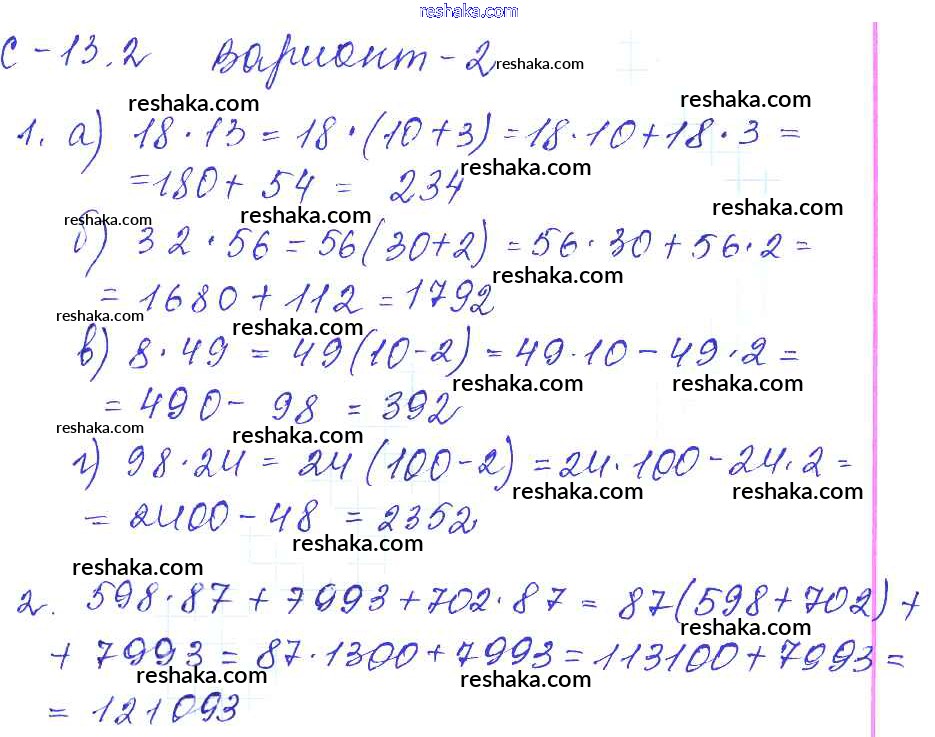 reshaka.com
С-13.2 Вариант-2
reshaka.com
reshaka.com reshaka.com
1. а) 18·13 = 18·(10+3) = 18·10+18·3 =
reshaka.com
=180+ 54 = 234
reshaka.com reshaka.com reshaka.com
б) 32·56 = 56(30+2) = 56·30+56·2 =
reshaka.com
= 1680+112 = 1792
reshaka.com reshaka.com
в) 8·49 = 49(10-2) = 49·10-49·2 =
reshaka.com reshaka.com
= 490- 98 = 392
reshaka.com reshaka.com
г) 98·24 = 24(100-2) = 24·100-24·2 =
reshaka.com reshaka.com
= 2400-48 = 2352
reshaka.com
reshaka.com
2. 598·87+7993+702·87 = 87(598+702)+
reshaka.com
+ 7993 = 87·1300+7993 = 113100+7993 =
reshaka.com reshaka.com
= 121093